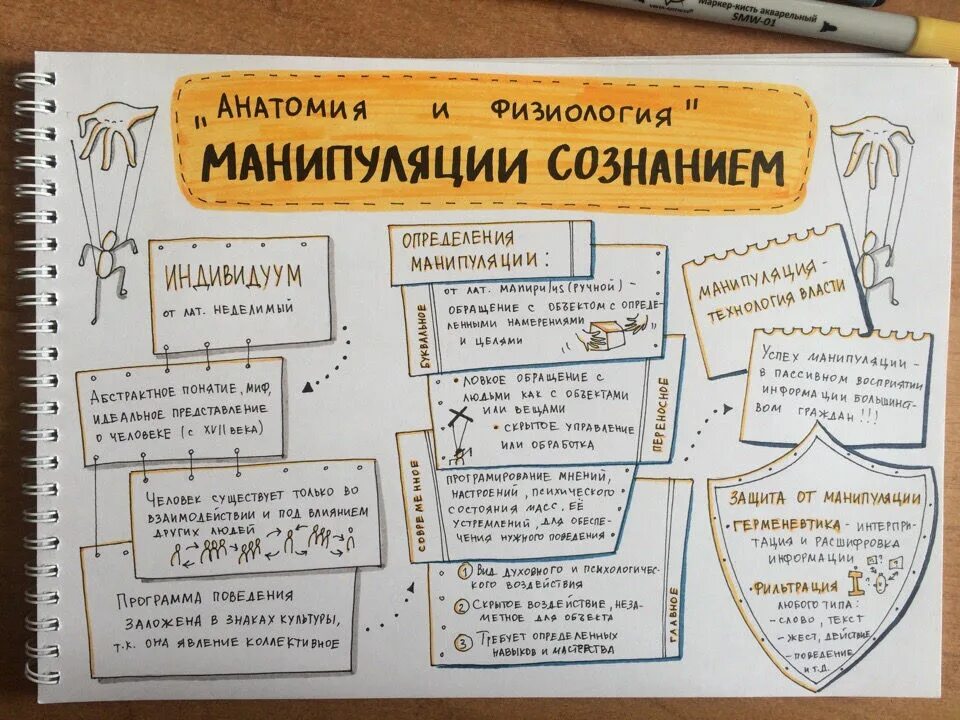 Маркер-кисть акварельный
SMW-01
„АНАТОМИЯ И ФИЗИОЛОГИЯ"
МАНИПУЛЯЦИИ СОЗНАНИЕМ
ИНДИВИДУУМ
ОТ ЛАТ. НЕДЕЛИМЫЙ
АБСТРАКТНОЕ ПОНЯТИЕ, МИФ,
ИДЕАЛЬНОЕ ПРЕДСТАВЛЕНИЕ
О ЧЕЛОВЕКЕ (С XVII ВЕКА)
ЧЕЛОВЕК СУЩЕСТВУЕТ ТОЛЬКО ВО
ВЗАИМОДЕЙСТВИИ И ПОД ВЛИЯНИЕМ
ДРУГИХ ЛЮДЕЙ
ПРОГРАММА ПОВЕДЕНИЯ
ЗАЛОЖЕНА В ЗНАКАХ КУЛЬТУРЫ,
Т.К. ОНА ЯВЛЕНИЕ КОЛЛЕКТИВНОЕ
ОПРЕДЕЛЕНИЯ
МАНИПУЛЯЦИИ:
БУКВАЛЬНОЕ
ОТ ЛАТ. (РУЧНОЙ) -
ОБРАЩЕНИЕ С ОБЪЕКТОМ С ОПРЕДЕ-
ЛЕННЫМИ НАМЕРЕНИЯМИ
И ЦЕЛЯМИ
ПЕРЕНОСНОЕ
• ЛОВКОЕ ОБРАЩЕНИЕ С
ЛЮДЬМИ КАК С ОБЪЕКТАМИ
ИЛИ ВЕЩАМИ
• СКРЫТОЕ УПРАВЛЕНИЕ
ИЛИ ОБРАБОТКА
СОВРЕМЕННОЕ
ПРОГРАМИРОВАНИЕ МНЕНИЙ,
НАСТРОЕНИЙ, ПСИХИЧЕСКОГО
СОСТОЯНИЯ МАСС, ЕЁ
УСТРЕМЛЕНИЙ, ДЛЯ ОБЕСПЕ-
ЧЕНИЯ НУЖНОГО ПОВЕДЕНИЯ
ГЛАВНОЕ
1 ВИД ДУХОВНОГО И ПСИХОЛОГИЧЕС-
КОГО ВОЗДЕЙСТВИЯ
2 СКРЫТОЕ ВОЗДЕЙСТВИЕ, НЕЗА-
МЕТНОЕ ДЛЯ ОБЪЕКТА
3 ТРЕБУЕТ ОПРЕДЕЛЕННЫХ
НАВЫКОВ И МАСТЕРСТВА
МАНИПУЛЯЦИЯ -
ТЕХНОЛОГИЯ ВЛАСТИ
УСПЕХ МАНИПУЛЯЦИИ -
В ПАССИВНОМ ВОСПРИЯТИИ
ИНФОРМАЦИИ БОЛЬШИНСТ-
ВОМ ГРАЖДАН!!!
ЗАЩИТА ОТ МАНИПУЛЯЦИИ
• ГЕРМЕНЕВТИКА - ИНТЕРПРИ-
ТАЦИЯ И РАСШИФРОВКА
ИНФОРМАЦИИ
• ФИЛЬТРАЦИЯ
ЛЮБОГО ТИПА:
- СЛОВО, ТЕКСТ
- ЖЕСТ, ДЕЙСТВИЕ
- ПОВЕДЕНИЕ
И Т.Д.